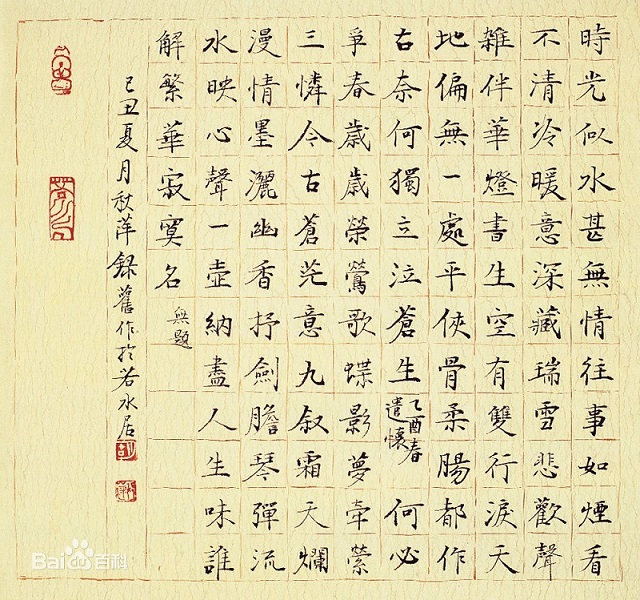 時光似水甚無情往事如煙看
不清冷暖意深藏瑞雪悲歡聲
雜伴華燈書生空有雙行淚天
地偏無一處平俠骨柔腸都作
古奈何獨立泣蒼生乙酉春遣懷何必
爭春歲歲榮鶯歌蝶影夢牽縈
三憐今古蒼茫意九叙霜天爛
漫情墨灑幽香抒劍膽琴彈流
水映心聲一壺納盡人生味誰
解繁華寂寞名無題
己丑夏月秋萍錄舊作於若水居
Bai百科